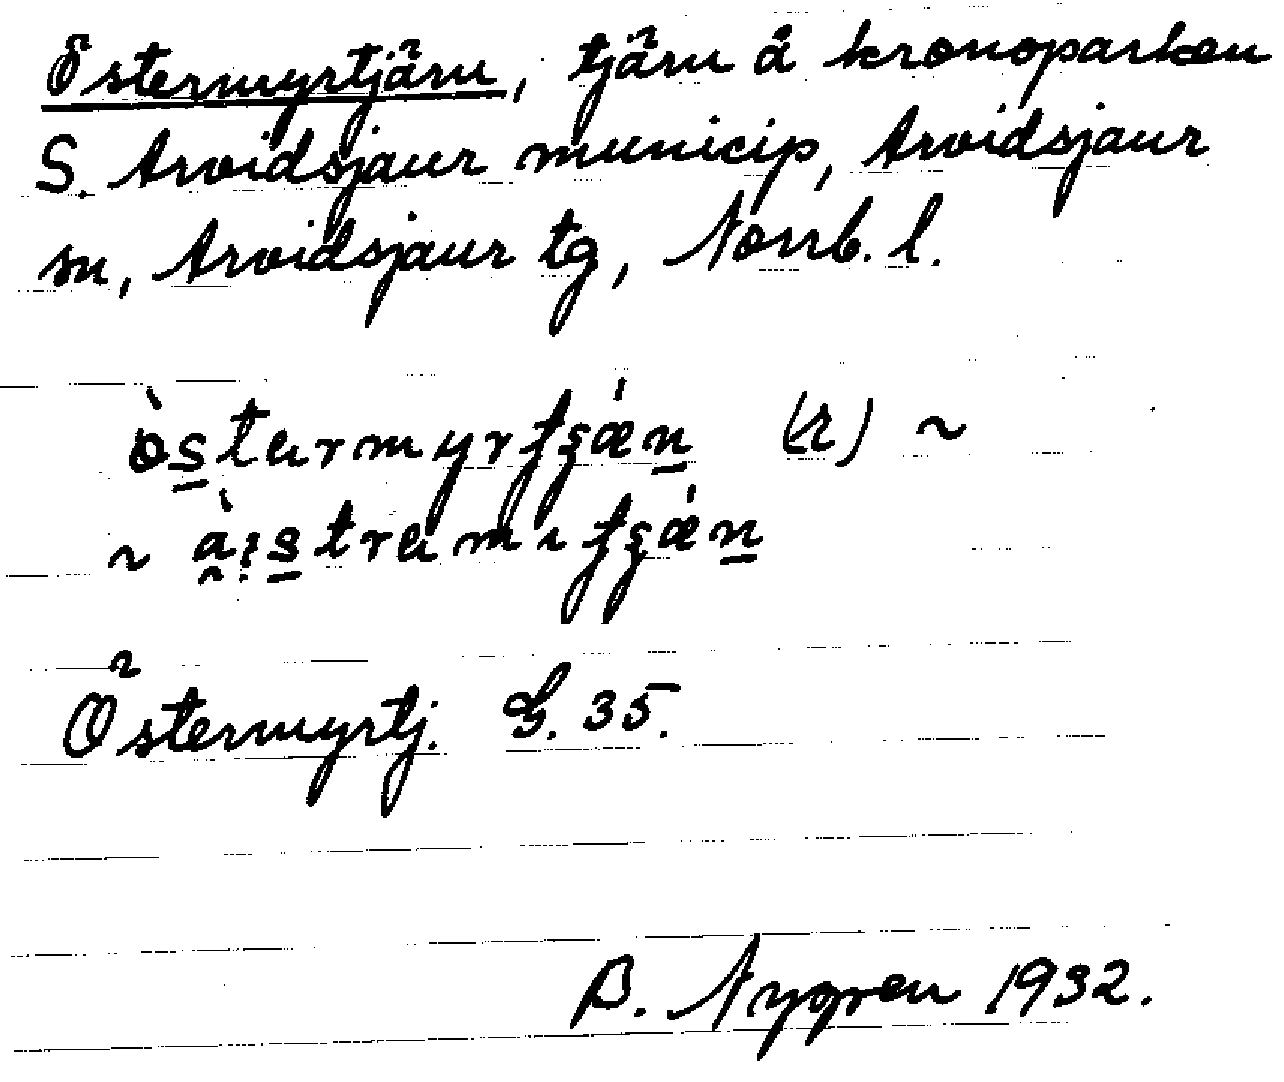 Östermyrtjärn, tjärn å kronoparken
S. Arvidsjaur municip, Arvidsjaur
sn, Arvidsjaur tg, Norrb. l.
(r) ~
~
Östermyrtj. G. 35.
B. Nygren 1932.